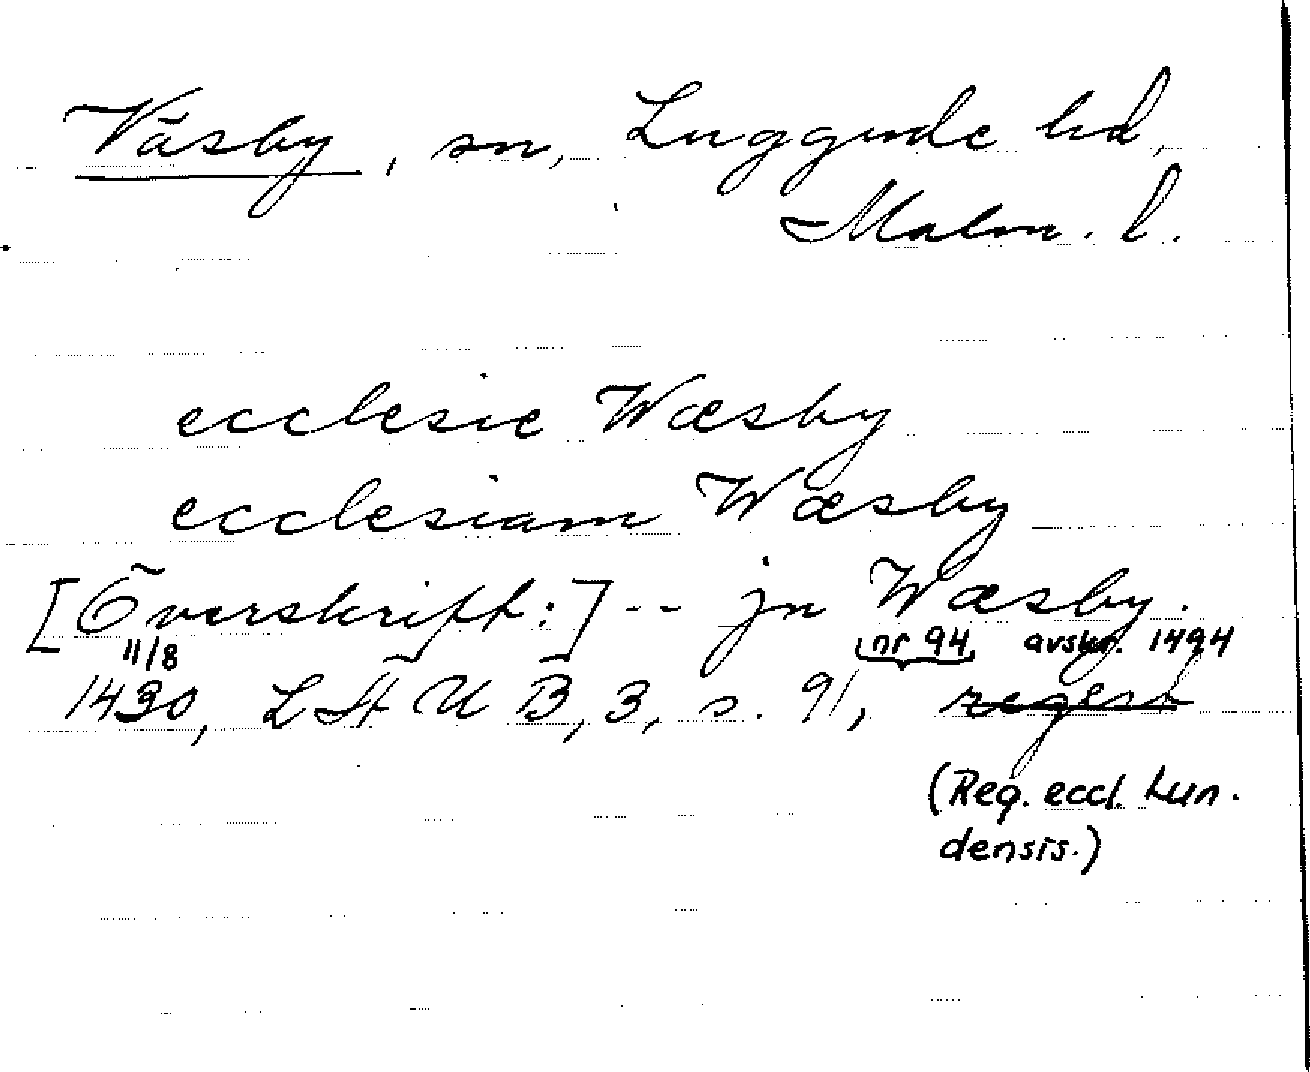 Väsby, sn, Luggude hd,
Malm. l.
ecclesie Wæsby
ecclesiam Wæsby
[Överskrift:] -- jn Wæsby.
11/8 nr 94 avskr. 1494
1430, LÄUB, 3, s. 91, regest
(Reg. eccl. Lun.
densis.)